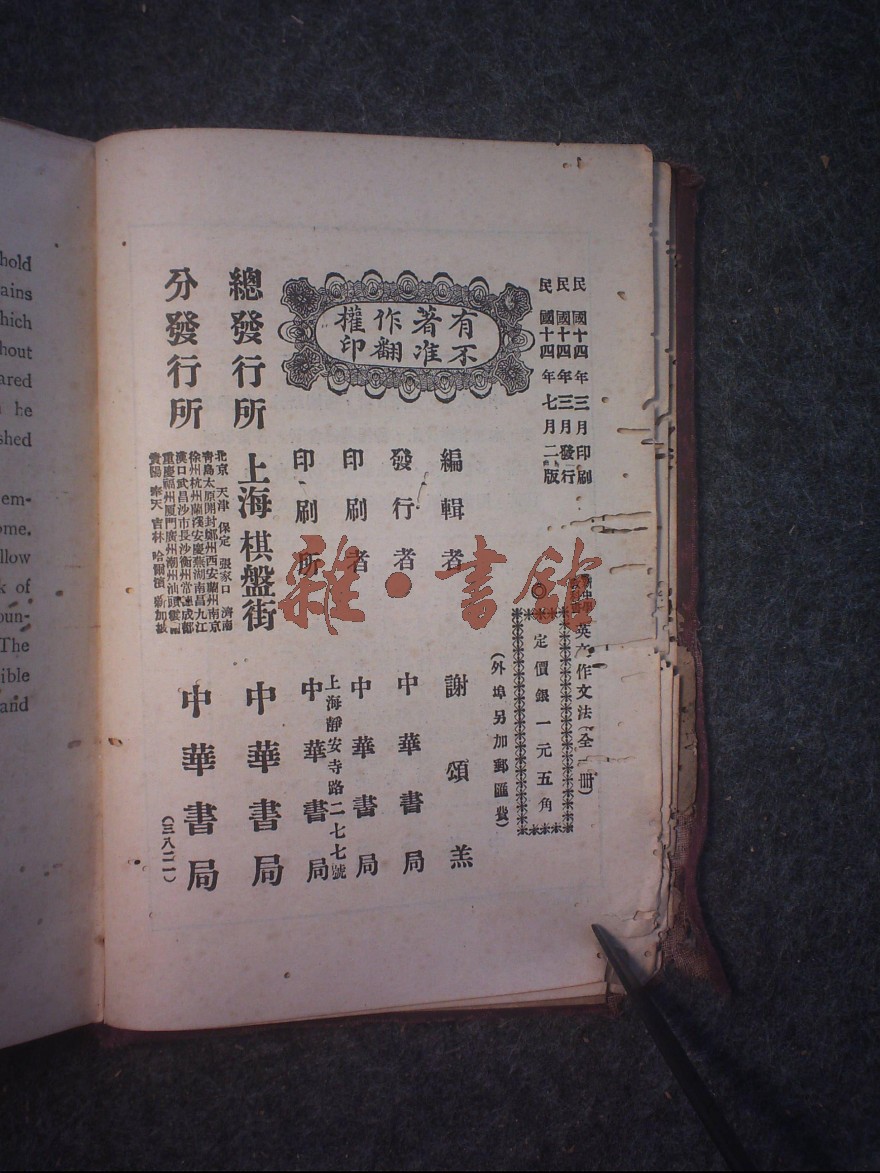 hold
ains
hich
hout
ared
he
shed
em-
ome.
llow
k of
oun-
The
ible
and
民國十四年三月印刷
民國十四年三月發行
民國十四年七月二版
有著作權
不准翻印
新中學教科書
英文作文法(全一冊)
◎定價銀一元五角
(外埠另加郵匯費)
編輯者 謝頌羔
發行者 中華書局
印刷者 中華書局
印刷所 上海靜安寺路二七七號 中華書局
總發行所 上海棋盤街 中華書局
分發行所
北京 天津 保定 張家口 濟南
青島太原開封鄭州西安蘭州南京
徐州杭州蘭溪安慶蕪湖南昌九江
漢口武昌沙市長沙衡州常德成都
重慶福州廈門廣州潮州汕頭雲南
貴陽 奉天 吉林 哈爾濱 新加坡
中華書局
(三八二一)
雜·書館